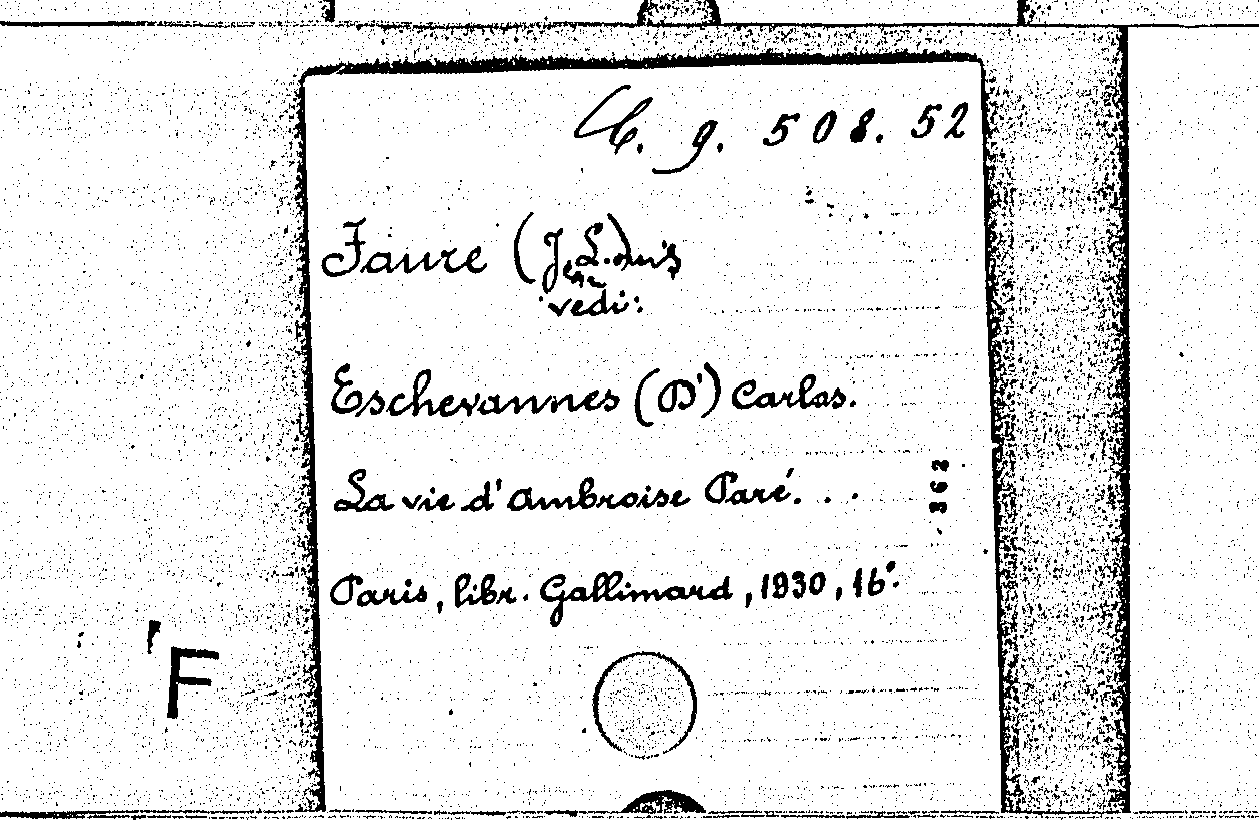 Cb. 9. 508. 52
Faure (J. L.)
vedi:
Eschevannes (D') Carlos.
La vie d'Ambroise Paré. . .
362
Paris, libr. Gallimard, 1930, 16°.
F